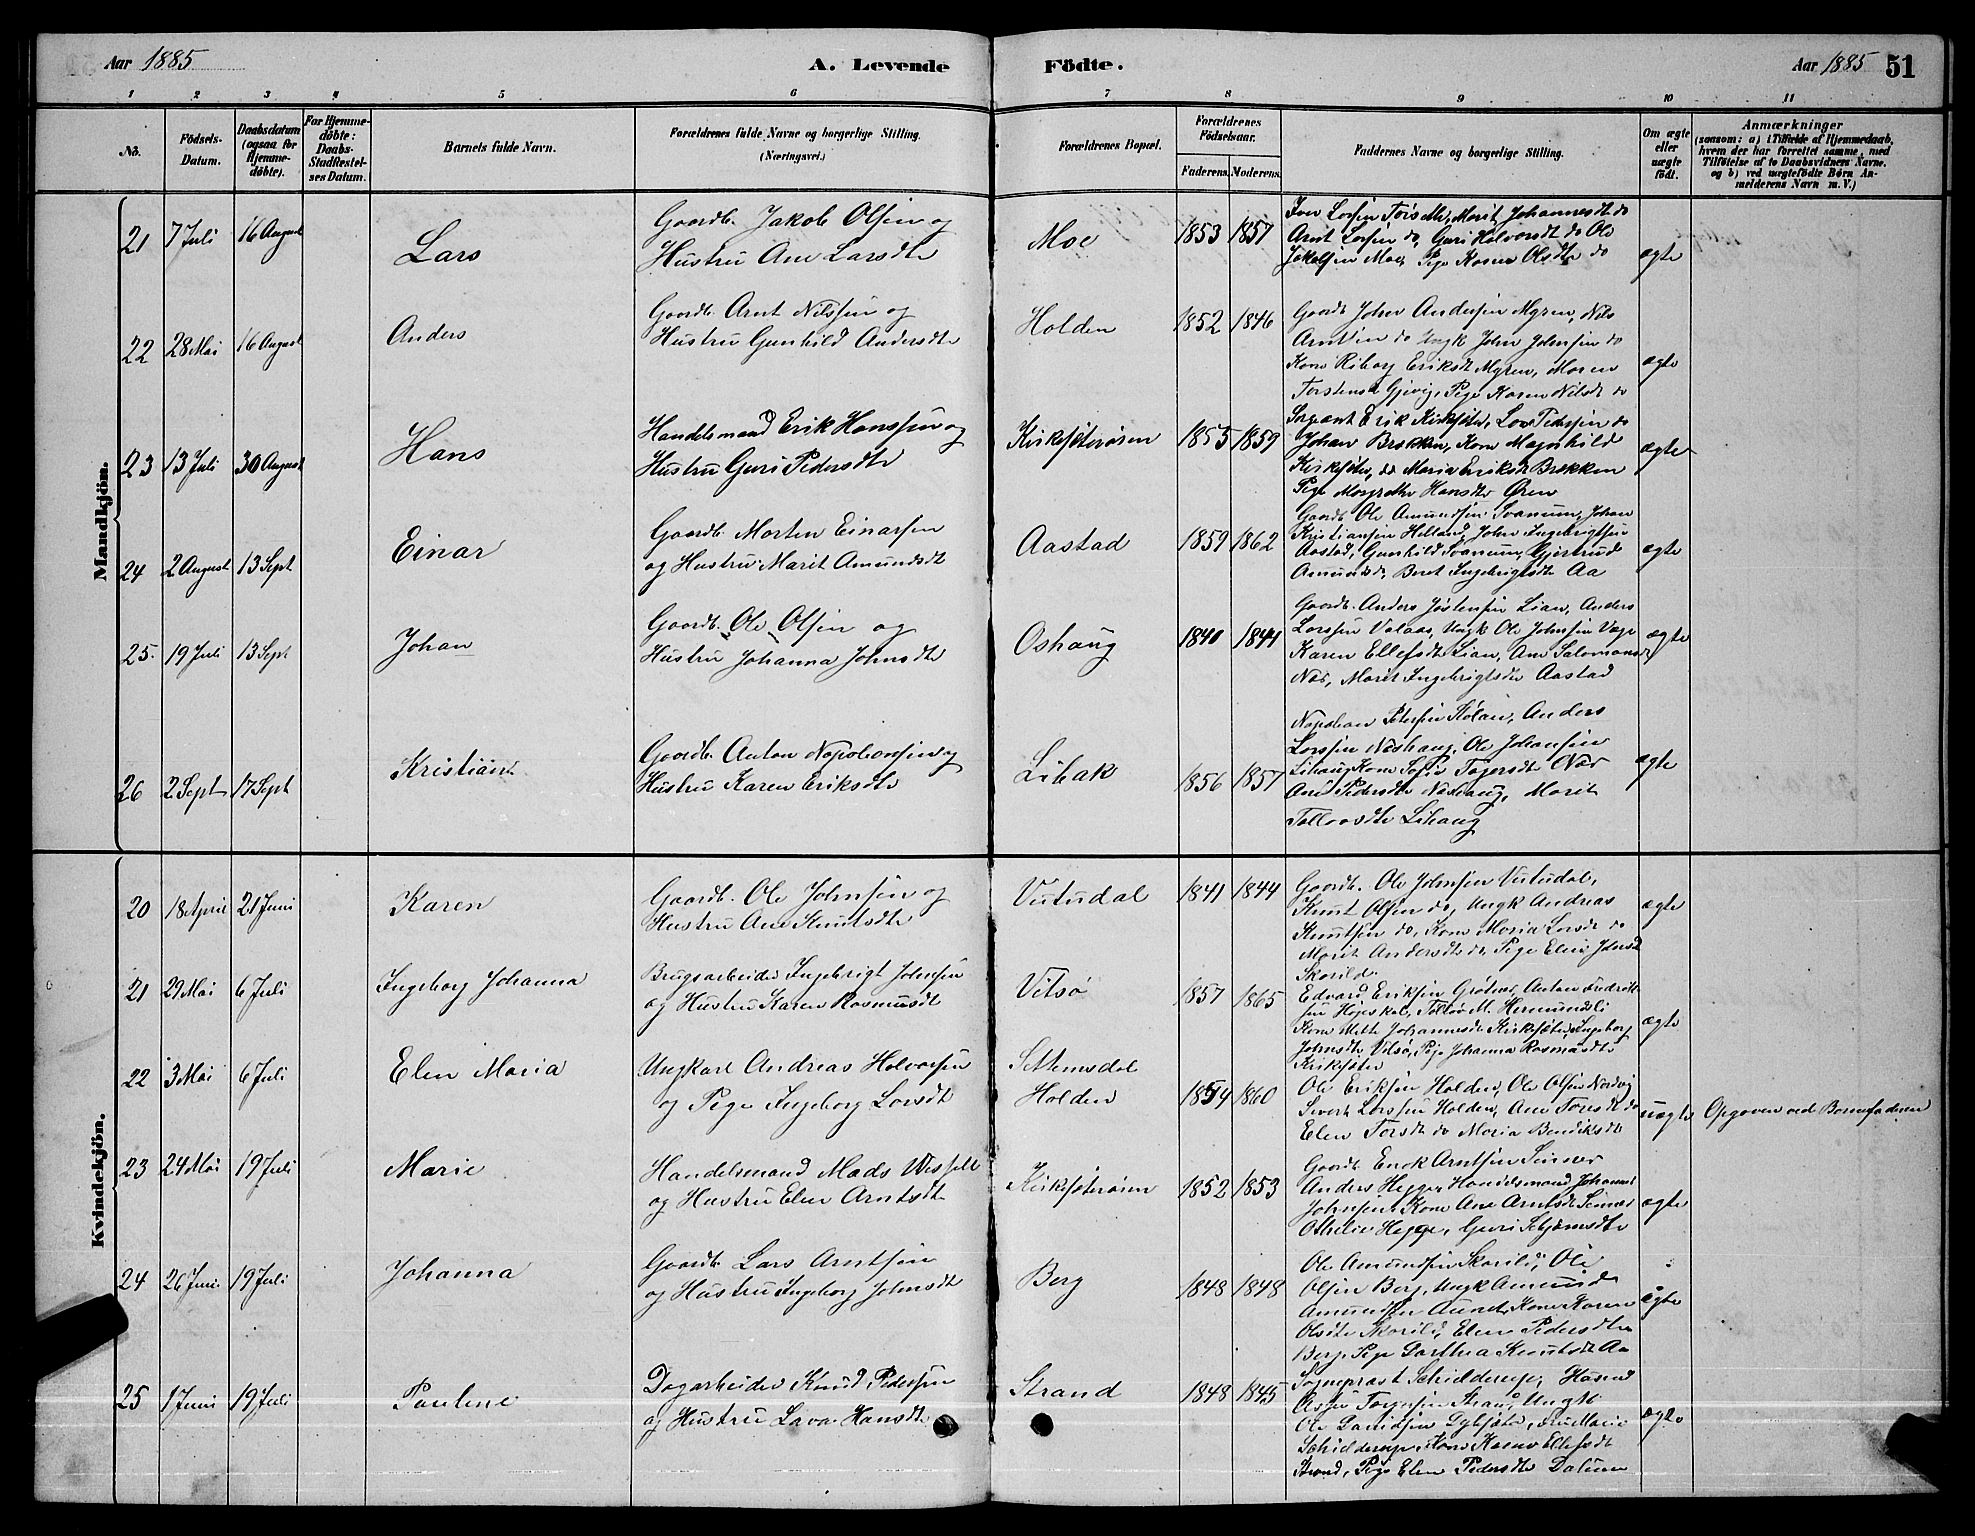 Aar 1885 A. Levende Födte. Aar 1885 51
1 2 3 4 5 6 7 8 9 10 11
No.
Födsels-
Datum.
Daabsdatum
(ogsaa for
Hjemme-
döbte).
For Hjemme-
döbte:
Daabs-
Stadfæstel-
ses Datum.
Barnets fulde Navn.
Forældrenes fulde Navne og borgerlige Stilling.
(Næringsvei.)
Forældrenes Bopæl.
Forældrenes
Födselsaar.
Faderens. Moderens.
Faddernes Navne og borgerlige Stilling.
Om ægte
eller
uægte
födt.
Anmærkninger
(saasom: a) i Tilfælde af Hjemmedaab,
hvem der har forrettet samme, med
Tilföielse af to Daabsvidners Navne.
og b) ved uægtefödte Börn An-
melderens Navn m. V.)
Mandkjön.
21 7 Juli 16 August Lars
Gaardb. Jakob Olsen og
Hustru Ane Larsdtr
Moe 1853 1857
Marit Johannesdtr do
Arnt Larsen do, Guri Halvorsdt do Ole
Jakobsen Moe, Pige Karen Olsdtr do
ægte
22 28 Mai 16 August Anders
Gaardb. Arnt Nilssen og
Hustru Gunhild Andersdtr
Holden 1852 1846
Gaardb John Andersen Myren, Nils
Arntsen do Ungk John Johnsen do
Kone Riborg Eriksdt Myren, Maren
Torstensd Gjevig, Pige Karen Nilsdt do
ægte
23 13 Juli 30 August Hans
Handelsmand Erik Hanssen og
Hustru Guri Pedersdtr
Kirksæterøren 1855 1859
Sergeant Erik Kirksæter, Lars Pedersen do
Johan Brekken, Kone Magnhild
Kirksæter, do Maria Eriksdt Brekken
Pige Margrethe Hansdtr Øren
ægte
24 2 August 13 Sept Einar
Gaardb. Morten Einarsen
og Hustru Marit Amundsdt
Aastad 1859 1862
Gaardb Ole Amundsen Svanum, Johan
Kristiansen Helland, John Ingebrigtsen
Aastad, Gunhild Svanum, Gjertrud
Amundsd, Beret Ingebrigtsdtr Aa
ægte
25. 19 Juli 13 Sept Johan
Gaardb. Ole Olsen og
Hustru Johanna Johnsdtr
Oshaug 1840 1841
Gaardb. Anders Jostensen Lian, Anders
Larssen Valaas, Ungk Ole Johnsen Vage
Karen Ellefsdtr Lian, Ane Salamonsdt
Næs, Marit Ingebrigtsdtr Aastad
ægte
26 2 Sept 17 Sept Kristian
Gaardb. Anton Napoleonsen og
Hustru Karen Eriksdtr
Lihak 1856 1857
Napolean Petersen Stølan, Anders
Larssen Næshaug, Ole Johansen
Lihaug Kone Sofie Tøgersdtr Næs
Ane Pedersdtr Næshaug, Marit
Lihaug
ægte
Kvindekjön.
20 18 April 21 Juni Karen
Gaardb. Ole Johnsen og
Hustru Ane Knutsdtr
Vutudal 1841 1844
Gaardb. Ole Johnsen Vutudal,
Knut Olsen do, Ungk Andreas
Knutsen do, Kone Maria Larsdt do
Marit Andersdtr do Pige Elen
Skorild
ægte
21 29 Mai 6 Juli Ingeborg Johanna
Brugsarbeider Ingebrigt Johnsen
og Hustru Karen Rasmusdt
Vitsø 1857 1865
Edvard Eriksen Grøtnes, Anton
Kone Mette Johannesdt Kirksæter, Ingeborg
Johnsdtr Vitsø, Pige Johanna Rasmusdtr
Kirksæter
ægte
22 3 Mai 6 Juli Elen Maria
Ungkarl Andreas Halvorsen
og Pige Ingeborg Larsdt
Stemsdal
Holden 1854 1860
Ole Eriksen Holden, Ole Olsen Nordvig
Sivert Larssen Holden, Ane Toresdt do
Elen Torsdt do Maria Bendiksdtr
uægte Opgaven ved Barnefaderen
23 24 Mai 19 Juli Marie
Handelsmand Mads Wessel
og Hustru Elen Arntsdt
Kirksæterøren 1852 1853
Gaardb Enok Arntsen Sinnes
Anders Hegge, Handelsmand Johannes
Johnsen, Kone Ane Arntsdt Sinnes
Othelie Hegge, Guri
ægte
24 26 Juni 19 Juli Johanna
Gaardb. Lars Arntsen
og Hustru Ingeborg Johnsdt
Berg 1848 1848
Ole Amundsen Skorild, Ole
Olsen Berg, Ungk Amund
Amundsen Aunet, Kone Karen
Olsdtr Skorild, Elen Pedersdtr
Berg, Pige Dorthea Knutsdt Aa
ægte
25 1 Juni 19 Juli Pauline
Dagarbeider Knud Pedersen
og Hustru Lava Hansdtr
Strand 1848 1845
Sogneprest Schielderup, Husmd
Strand, Ungk
Ole Davidsen Lybsæter, Fru Marie
Schielderup, Kone Karen Ellefsdt
Strand, Pige Elen Pedersdtr Dalum
ægte